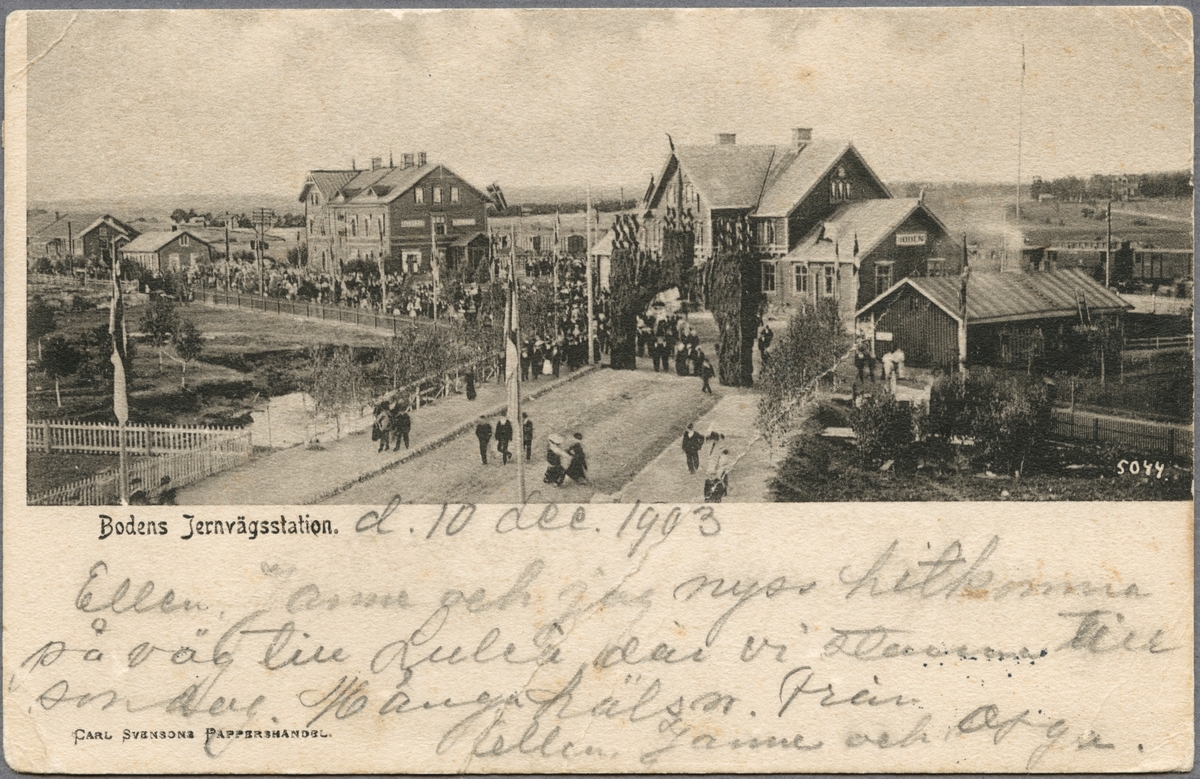 BODEN
5044.
Bodens Jernvägsstation. d. 10 dec. 1903
Ellen, Janne och jag nyss hitkomna
på väg till Luleå, där vi stanna till
söndag. Många hälsn. Från
CARL SVENSONS PAPPERSHANDEL.
Ellen, Janne och Olga.